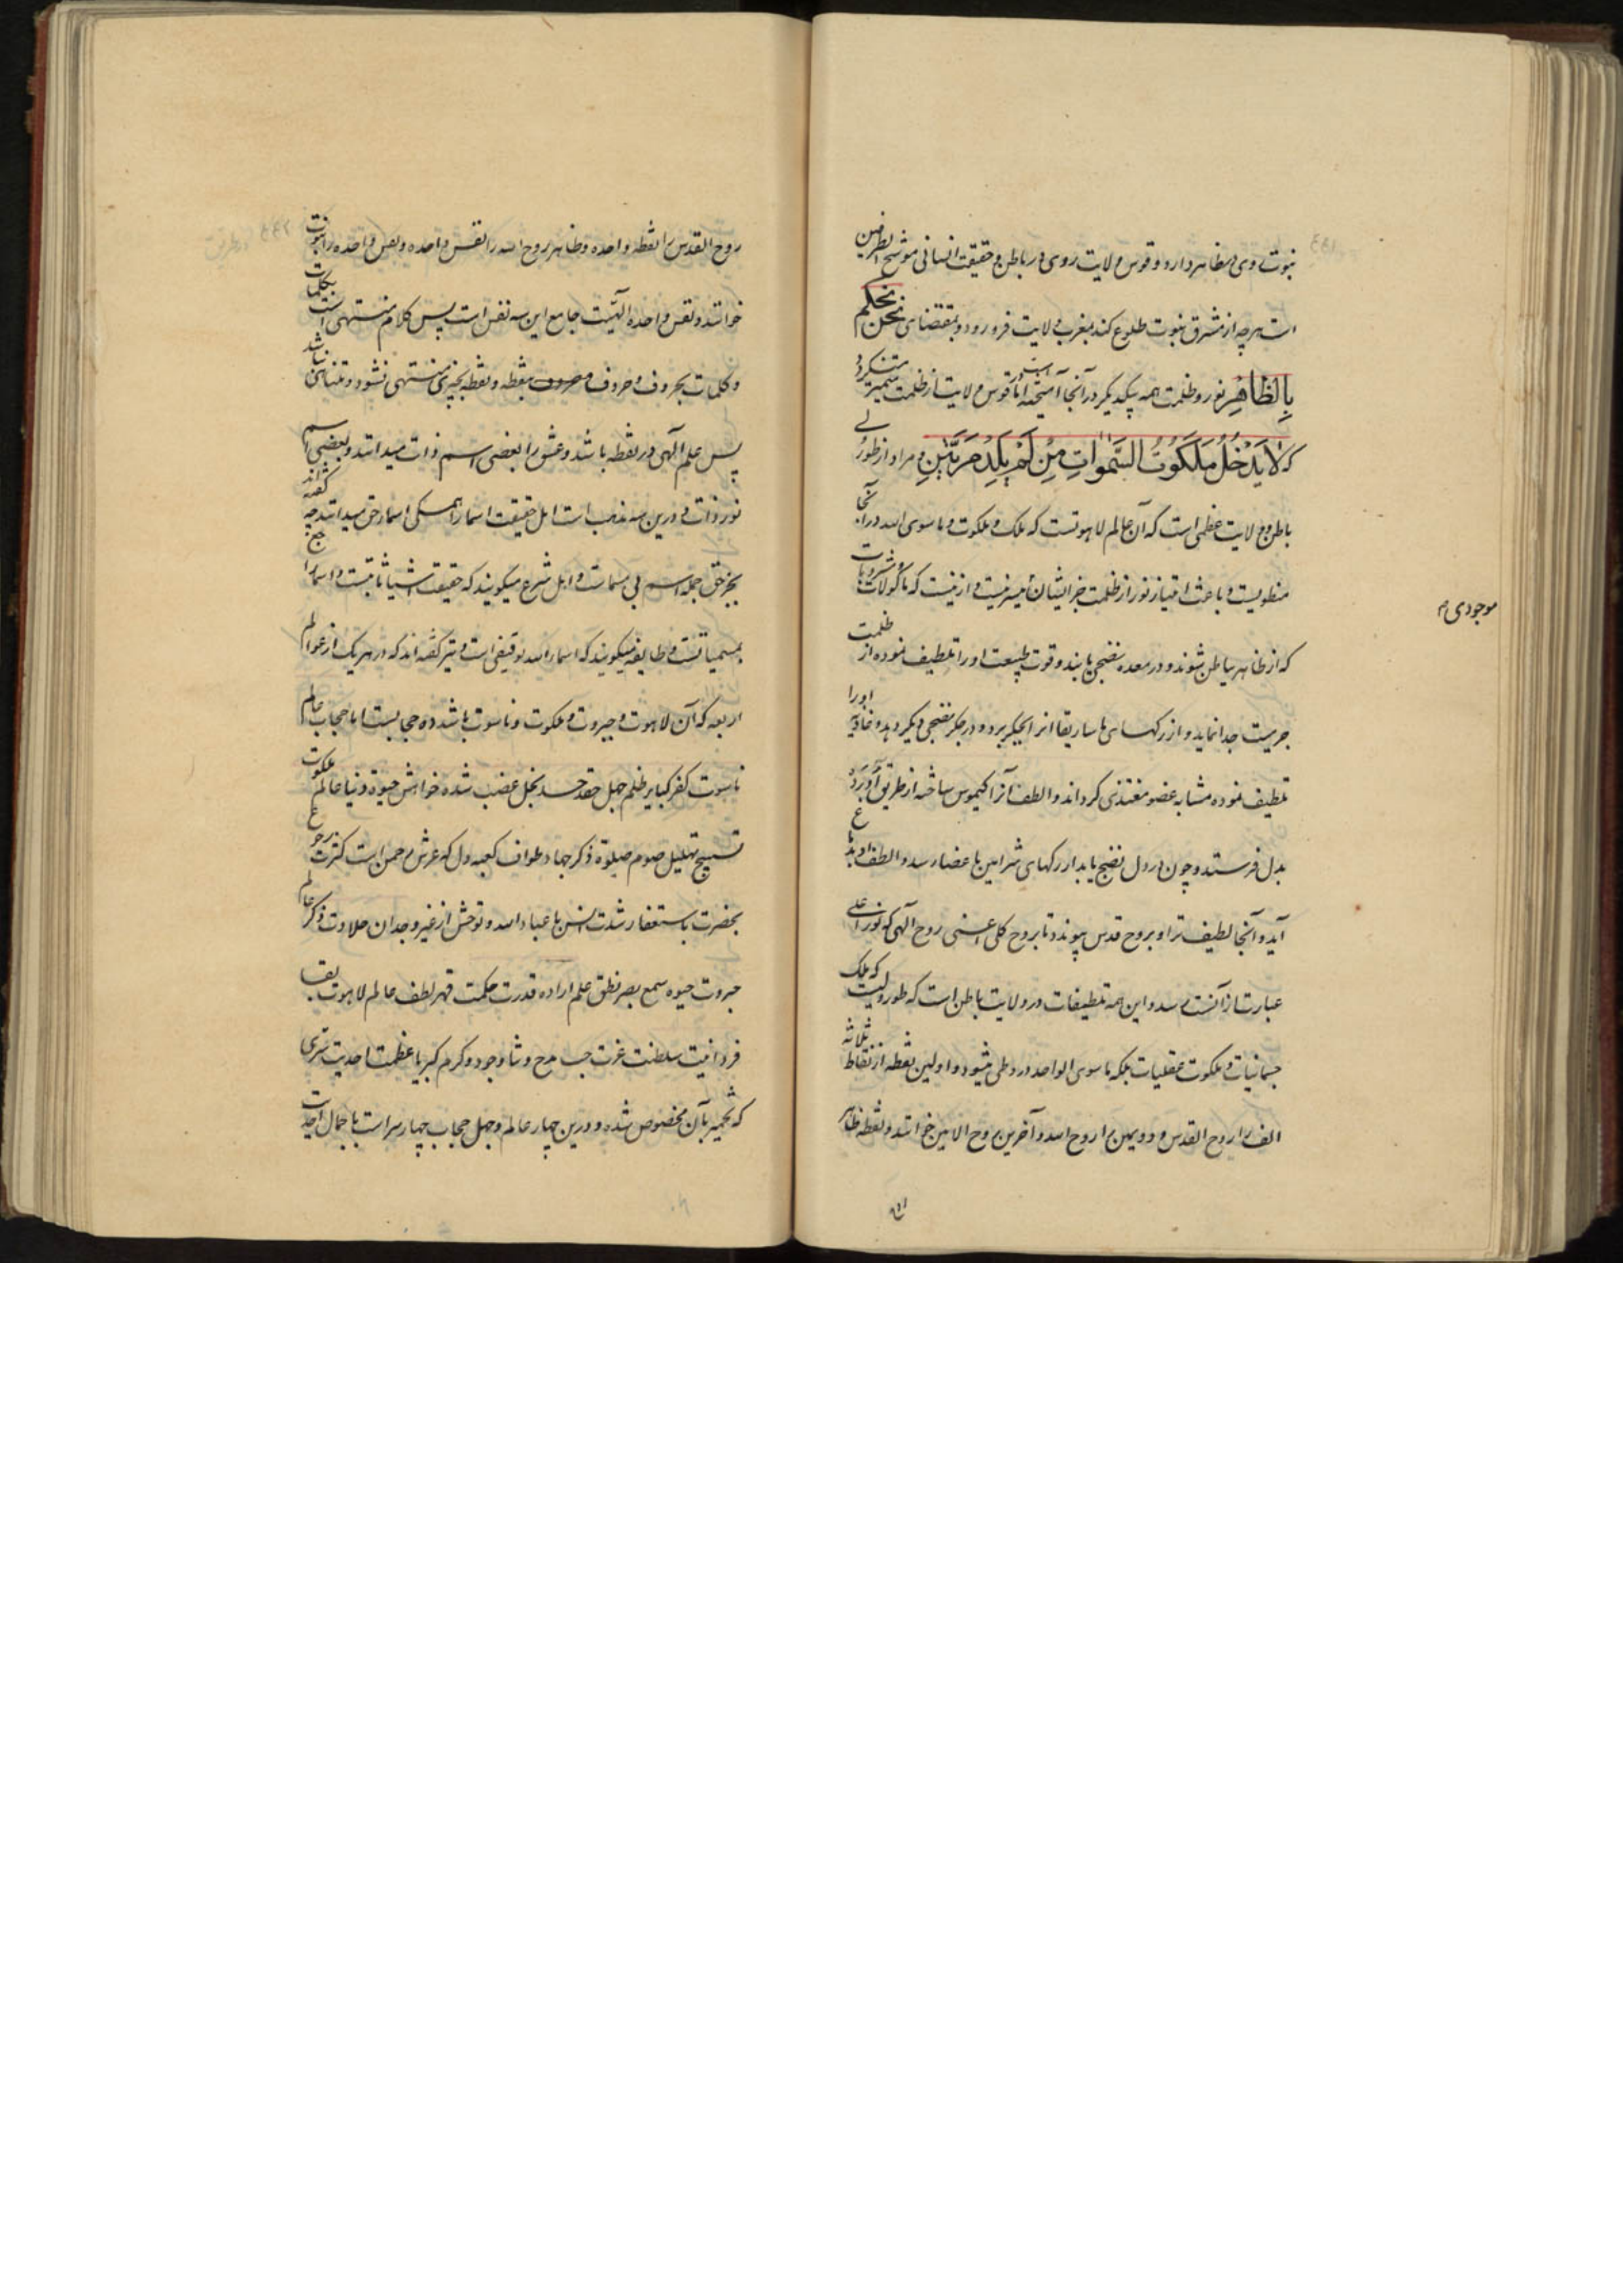 نبوت روی در ظاهر دارد و قوس ولایت روی در باطن و حقیقت انسانی موشح الطرفین
است هر چه از مشرق نبوت طلوع کند بمغرب ولایت فرو رود و بمقتضای نحن نحکم
بالظاهر نور و ظلمت همه بیکدیگر در آنجا آمیخته است اما قوس ولایت نور از ظلمت متمیز کرد
که لا یدخل ملکوت السموات من لم یلد مرتین و مراد از طور
باطن ولایت عظمی است که آن عالم لاهوتست که ملک و ملکوت و ما سوی الله در آنجا
منطویست و باعث امتیاز نور از ظلمت جز ایشان میسر نیست و ازینست که ماکولات و مشروبات
موجودی
که از ظاهر بباطن شوند و در معده نضجی یابند و قوت طبیعت او را تلطیف نموده از ظلمت
جدا نماید و از رکهای ماساریقا انرا بجگر برد و در جگر نضجی دیگر دهد و او را
تلطیف نموده مشابه عضو مغتذی گرداند و الطف آنرا کیموس ساخته از طریق
بدل فرستد و چون در دل نضج یابد از رکهای شرائین باعضا رسد و الطف او بدماغ
آید و آنجا لطیف تر او بروح قدس پیوندد تا بروح کلی اعنی روح الهی که نور اعلی
عبارت از آنست رسد و این همه تلطیفات در ولایت باطن است که طور ولیست که ملک
جسمانیات و ملکوت عقلیات بلکه ما سوی الواحد در و طی میشود و اولین نقطه از نقاط ثلاثه
الف را روح القدس و دویمین را روح الله و آخرین روح الامین خوانند و نقطه ظاهر
روح القدس را نقطه واحده و ظاهر روح الله را نفس واحده و نفس واحده را نبوت
خوانند و نفس واحده الهیت جامع این سه نفس است پس کلام منتهی است بکلمات
و کلمات بحروف و حروف بنقطه و نقطه بچیزی منتهی نشود و متناهی نباشد
پس علم الهی در نقطه باشد و عشق را بعضی اسم ذات میدانند و بعضی اسم
نور ذات و درین سه مذهب است اهل حقیقت اسما را همگی اسما حق میدانند چه گفته اند
بجز حق جمله اسم بی مسماست و اهل شرع میگویند که حقیقت اشیا ثابتست و اسما را
بمسمیاتست و طایفه میگویند که اسما الله توقیفی است و نیز گفته اند که در هر یک از عوالم
اربعه که آن لاهوت و جبروت و ملکوت و ناسوت باشد ده حجابست اما حجاب عالم
ناسوت کفر کبایر ظلم جهل حقد حسد بخل غضب شده خواهش حیوة دنیا عالم ملکوت
تسبیح تهلیل صوم صلوة ذکر جهاد طواف کعبه دل که عرش رحمن است کثرت رجوع
بحضرت باستغفار شدت انس با عباد الله و توحش از غیر و جدان حلاوت ذکر عالم
جبروت حیوه سمع بصر نطق علم اراده قدرت حکمت قهر لطف عالم لاهوت بقا
فردانیت سلطنت عزت حب مدح و ثنا وجود و کرم کبریا عظمت احدیت سری
که بآن مخصوص شده و درین چهار عالم و چهل حجاب چهار سراست با جمال احدیت